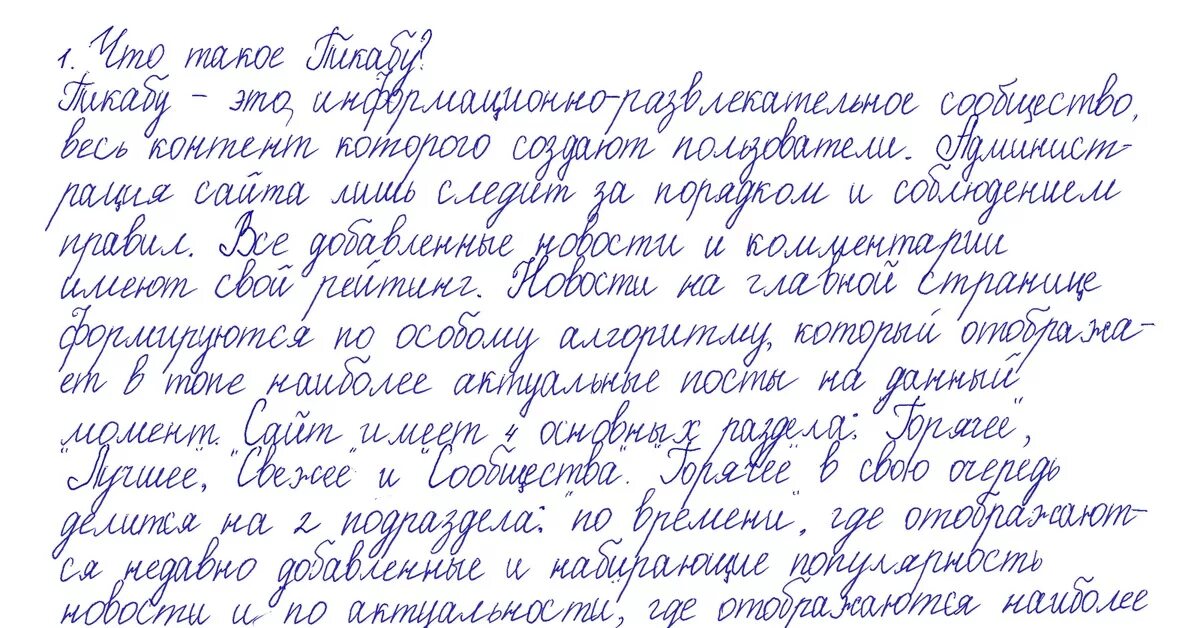 1. Что такое Пикабу?
Пикабу - это информационно-развлекательное сообщество,
весь контент которого создают пользователи. Админист-
рация сайта лишь следит за порядком и соблюдением
правил. Все добавленные новости и комментарии
имеют свой рейтинг. Новости на главной странице
формируются по особому алгоритму, который отобража-
ет в топе наиболее актуальные посты на данный
момент. Сайт имеет 4 основных раздела: "Горячее",
"Лучшее", "Свежее" и "Сообщества". "Горячее" в свою очередь
делится на 2 подраздела: "по времени", где отображают-
ся недавно добавленные и набирающие популярность
новости и "по актуальности", где отображаются наиболее